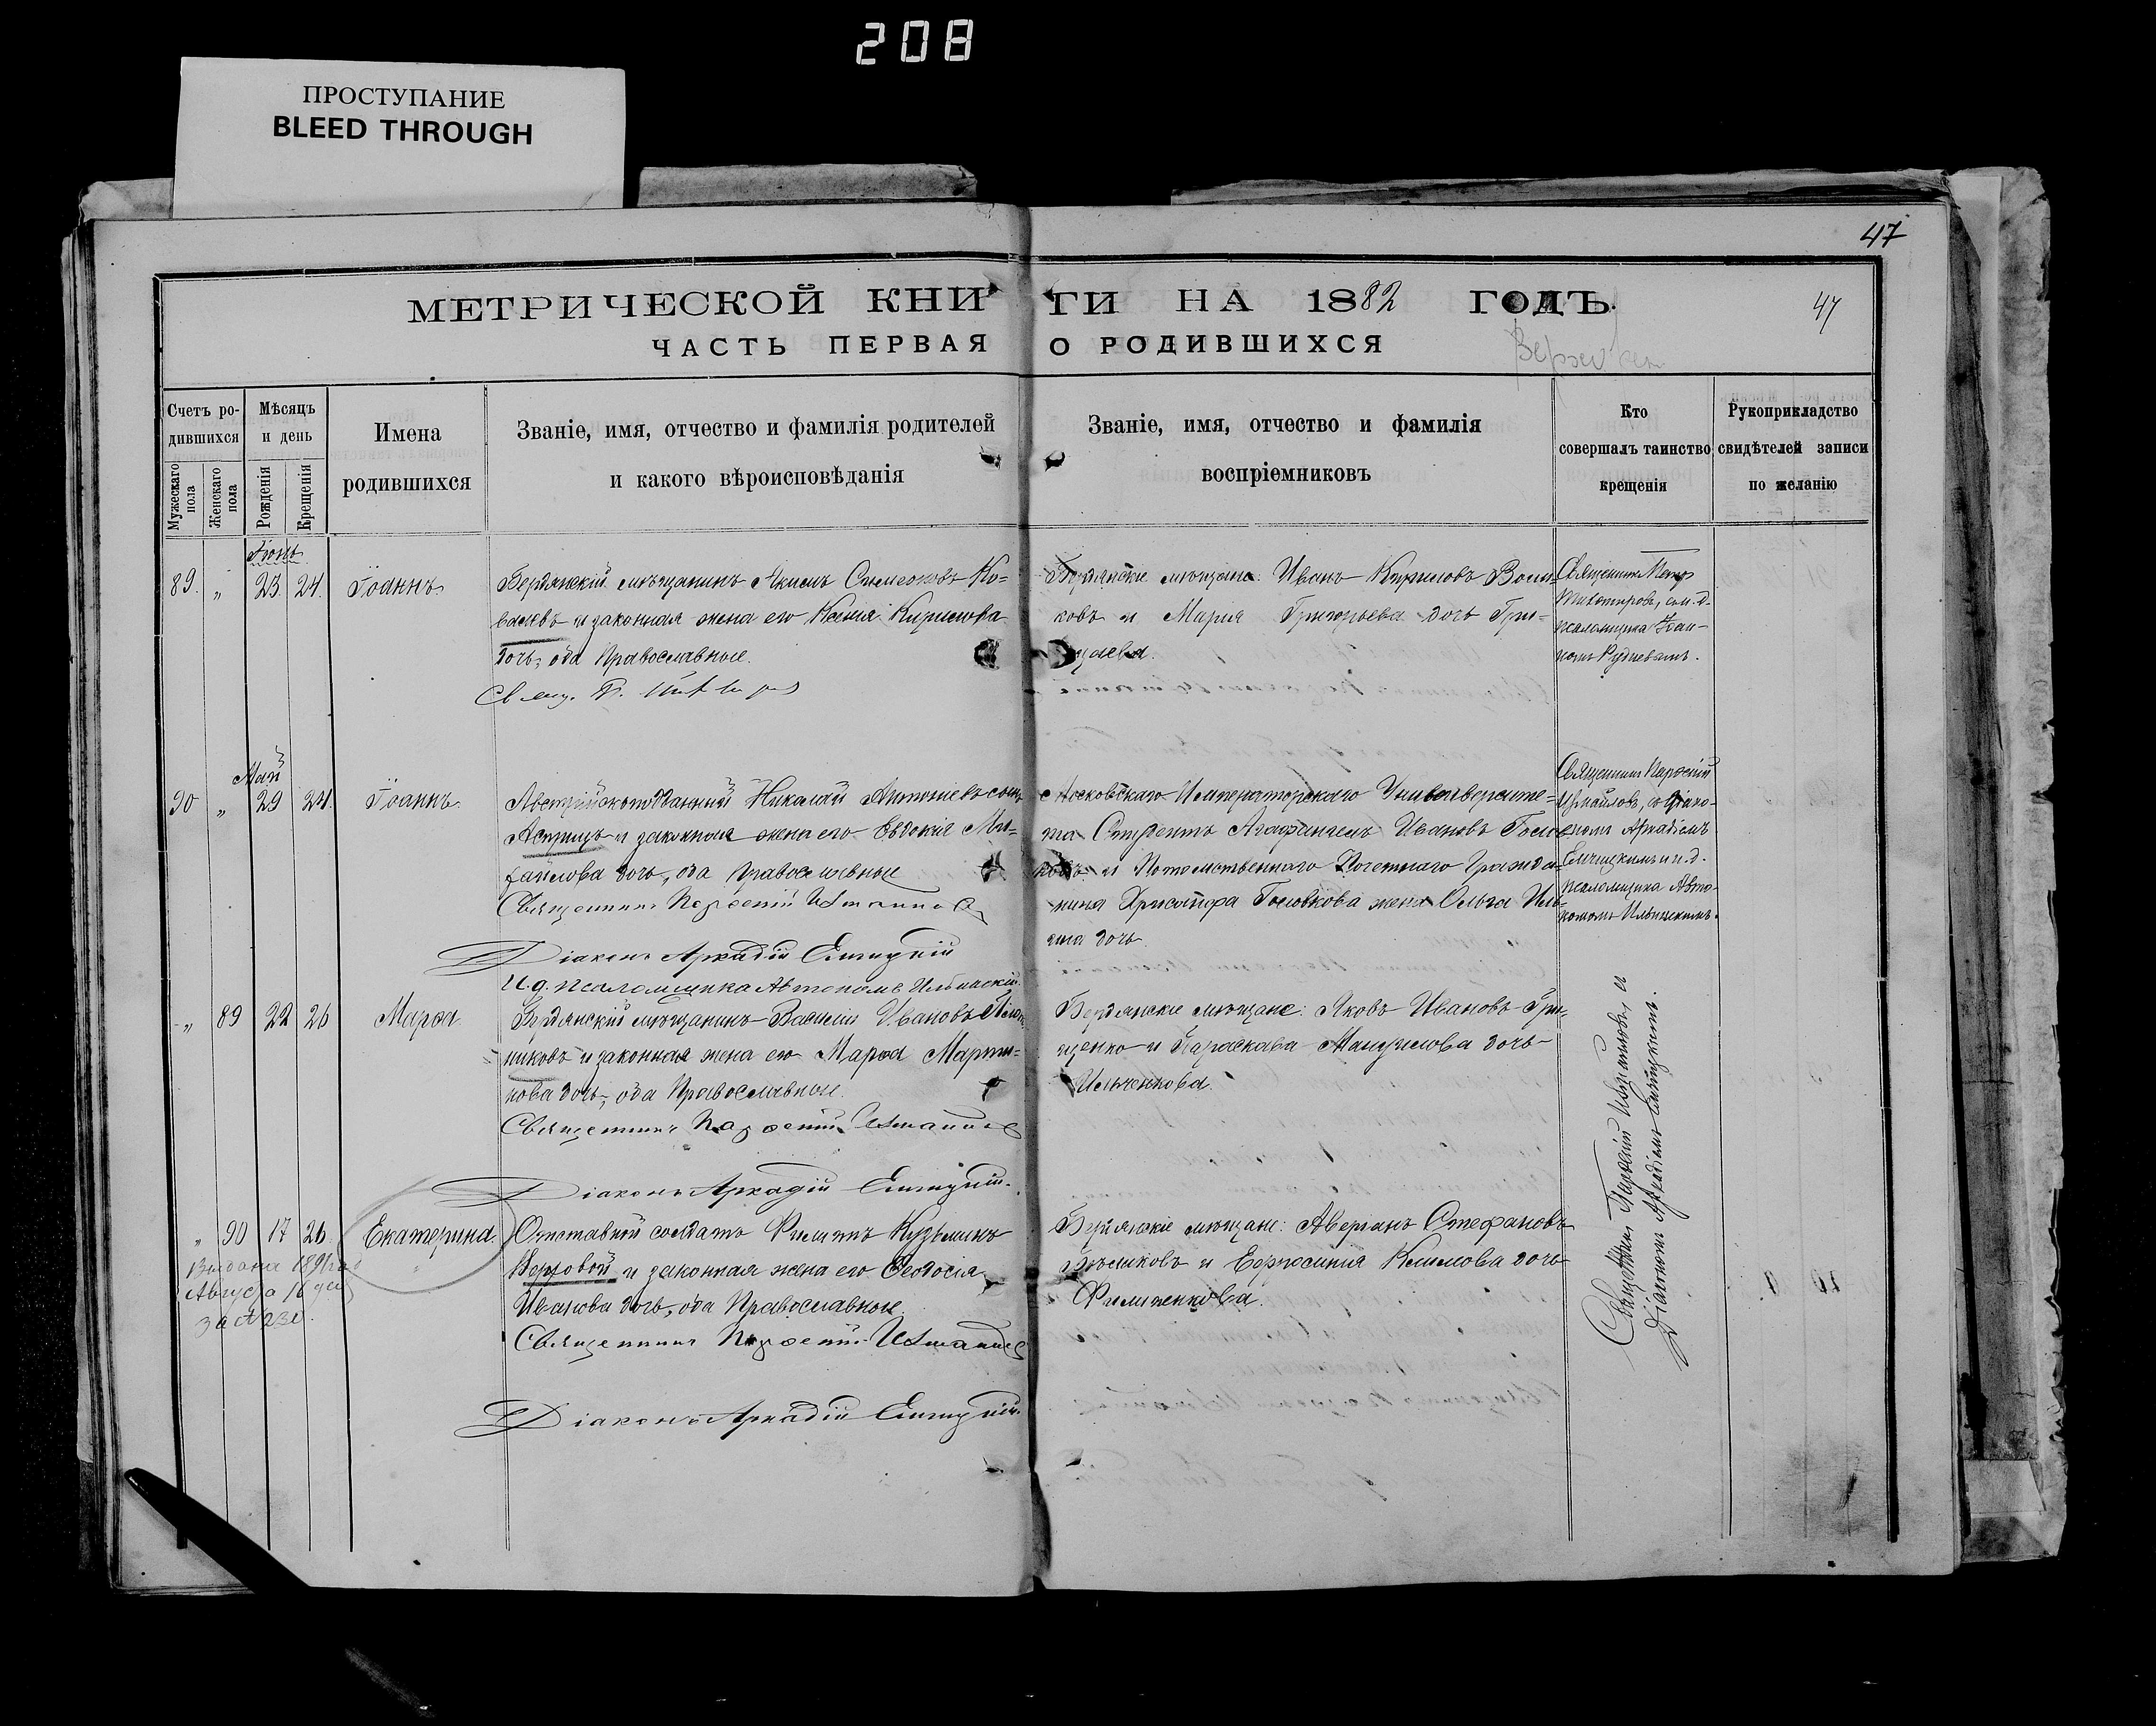 208
ПРОСТУПАНИЕ
BLEED THROUGH
47
МЕТРИЧЕСКОЙ КНИГИ НА 1882 ГОДЪ.
47
ЧАСТЬ ПЕРВАЯ О РОДИВШИХСЯ
Счетъ родившихся
Мужескаго пола
Женскаго пола
Мѣсяцъ и день
Рожденія
Крещенія
Имена родившихся
Званіе, имя, отчество и фамилія родителей
и какого вѣроисповѣданія
Званіе, имя, отчество и фамилія
воспріемниковъ
Кто
совершалъ таинство
крещенія
Рукоприкладство
свидѣтелей записи
по желанію
Іюнь
89. „ 23. 24. Іоаннъ.
Бердянскій мѣщанинъ Акимъ Симеоновъ Ко=
валевъ и законная жена его Ксенія Кирилова
дочь, оба Православные.
Свящ. П.
Бердянскіе мѣщане: Иванъ Кириловъ
ковъ и Марія Григорьева дочь Гри=
Священникъ Петръ
Тихомировъ, съ и. д.
псаломщика Іоан-
номъ Рудневымъ.
Май
90 „ 29 24. Іоаннъ.
Австрійскоподданный Николай Антоніевъ сынъ
и законная жена его Евдокія Ми=
хайлова дочь, оба Православные
Священникъ Парѳеній Измаиловъ
Діаконъ Аркадій
И. д. псаломщика Автономъ Ильинскій.
Московскаго Императорскаго Университе=
та Студентъ Агафангелъ Ивановъ Голов
ковъ и Потомственнаго Почетнаго Гражда=
нина Христофора Головкова жена Ольга Иль
ина дочь
Священникъ Парѳеній
Измаиловъ, съ діако-
номъ Аркадіемъ
и и. д.
псаломщика Авто-
номомъ Ильинскимъ.
„ 89 22 26 Марѳа.
Бердянскій мѣщанинъ Василій Ивановъ
никовъ и законная жена его Марѳа Марти=
нова дочь, оба Православные.
Священникъ Парѳеній Измаиловъ
Діаконъ Аркадій
Бердянскіе мѣщане: Яковъ Ивановъ Гри=
щенко и Параскева дочь
Ильченкова.
„ 90 17 26. Екатерина.
Выдана 1891 год
Августа 16 дня
за № 230.
Отставной солдатъ Филиппъ Кузьминъ
Верховой и законная жена его Ѳеодосія
Иванова дочь, оба Православные.
Священникъ Парѳеній Измаиловъ
Діаконъ Аркадій
Бердянскіе мѣщане: Аверіанъ Стефановъ
и Ефросинія Климова дочь
Филипенкова.
Священникъ Парѳеній Измаиловъ, съ
Діакономъ Аркадіемъ